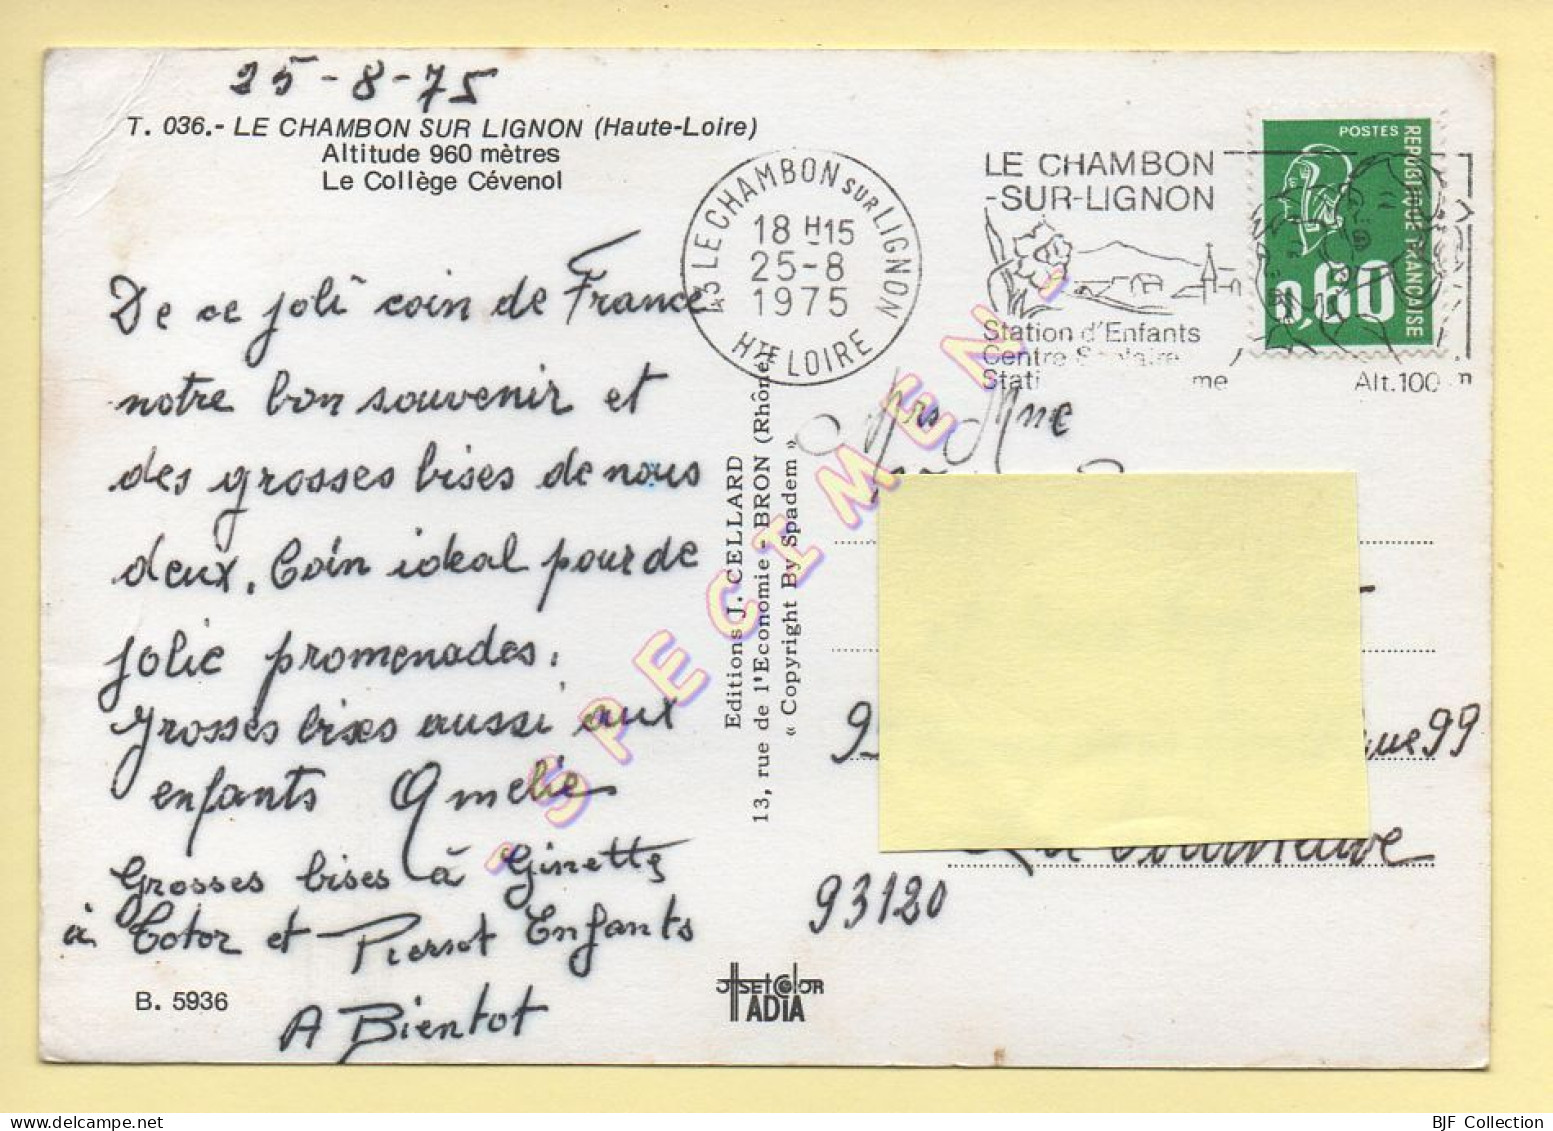 25-8-75
T. 036.- LE CHAMBON SUR LIGNON (Haute-Loire)
Altitude 960 mètres
Le Collège Cévenol
De ce joli coin de France
notre bon souvenir et
des grosses bises de nous
deux. Coin idéal pour de
jolie promenades.
Grosses bises aussi aux
enfants Amelie
Grosses bises à Ginette
à Totor et Pierrot Enfants
A Bientot
B. 5936
43 LE CHAMBON SUR LIGNON
18 H 15
25-8
1975
HTE LOIRE
LE CHAMBON
-SUR-LIGNON
Station d'Enfants
Centre
Alt.100
POSTES
REPUBLIQUE FRANÇAISE
0,60
Editions J. CELLARD
13, rue de l'Economie - BRON (Rhône)
« Copyright By Spadem »
SPECIMEN
Mrs Mme
99
93120
OFFSETCOLOR
ADIA
BJF Collection